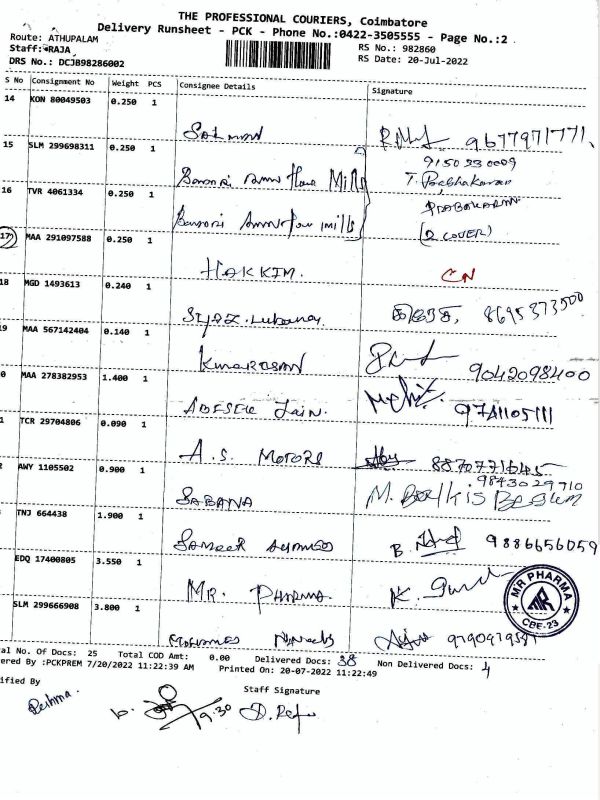 THE PROFESSIONAL COURIERS, Coimbatore
Delivery Runsheet - PCK - Phone No.:0422-3505555 - Page No.:2
Route: ATHUPALAM
RS No.: 982860
Staff: RAJA
RS Date: 20-Jul-2022
DRS No.: DCJB98286002
S No Consignment No Weight PCS Consignee Details Signature
14 KON 80049503 0.250 1
Salman 9677971771
15 SLM 299698311 0.250 1
9150330009
Mills T. Prabhakaran
16 TVR 4061334 0.250 1
PRABAKARAN
mills (2 COVER)
17 MAA 291097588 0.250 1
HAKKIM. CN
18 MGD 1493613 0.240 1
8695373500
9 MAA 567142404 0.140 1
Kumarasan
9042098400
0 MAA 278382953 1.400 1
Jain. 9741105111
1 TCR 29704806 0.090 1
A.S. MOTORS 8870771645
2 AWY 1105502 0.900 1
9843029710
SABANA M. Begum
TNJ 664438 1.900 1
Sameer B. 9886656059
EDQ 17400805 3.550 1
MR. PHARMA. K.
MR PHARMA
CBE-23
SLM 299666908 3.800 1
Mohamed
al No. Of Docs: 25 Total COD Amt: 0.00 Delivered Docs: 38 Non Delivered Docs: 4
ered By :PCKPREM 7/20/2022 11:22:39 AM Printed On: 20-07-2022 11:22:49
ified By Staff Signature
Reshma.
9.30
D. Raja